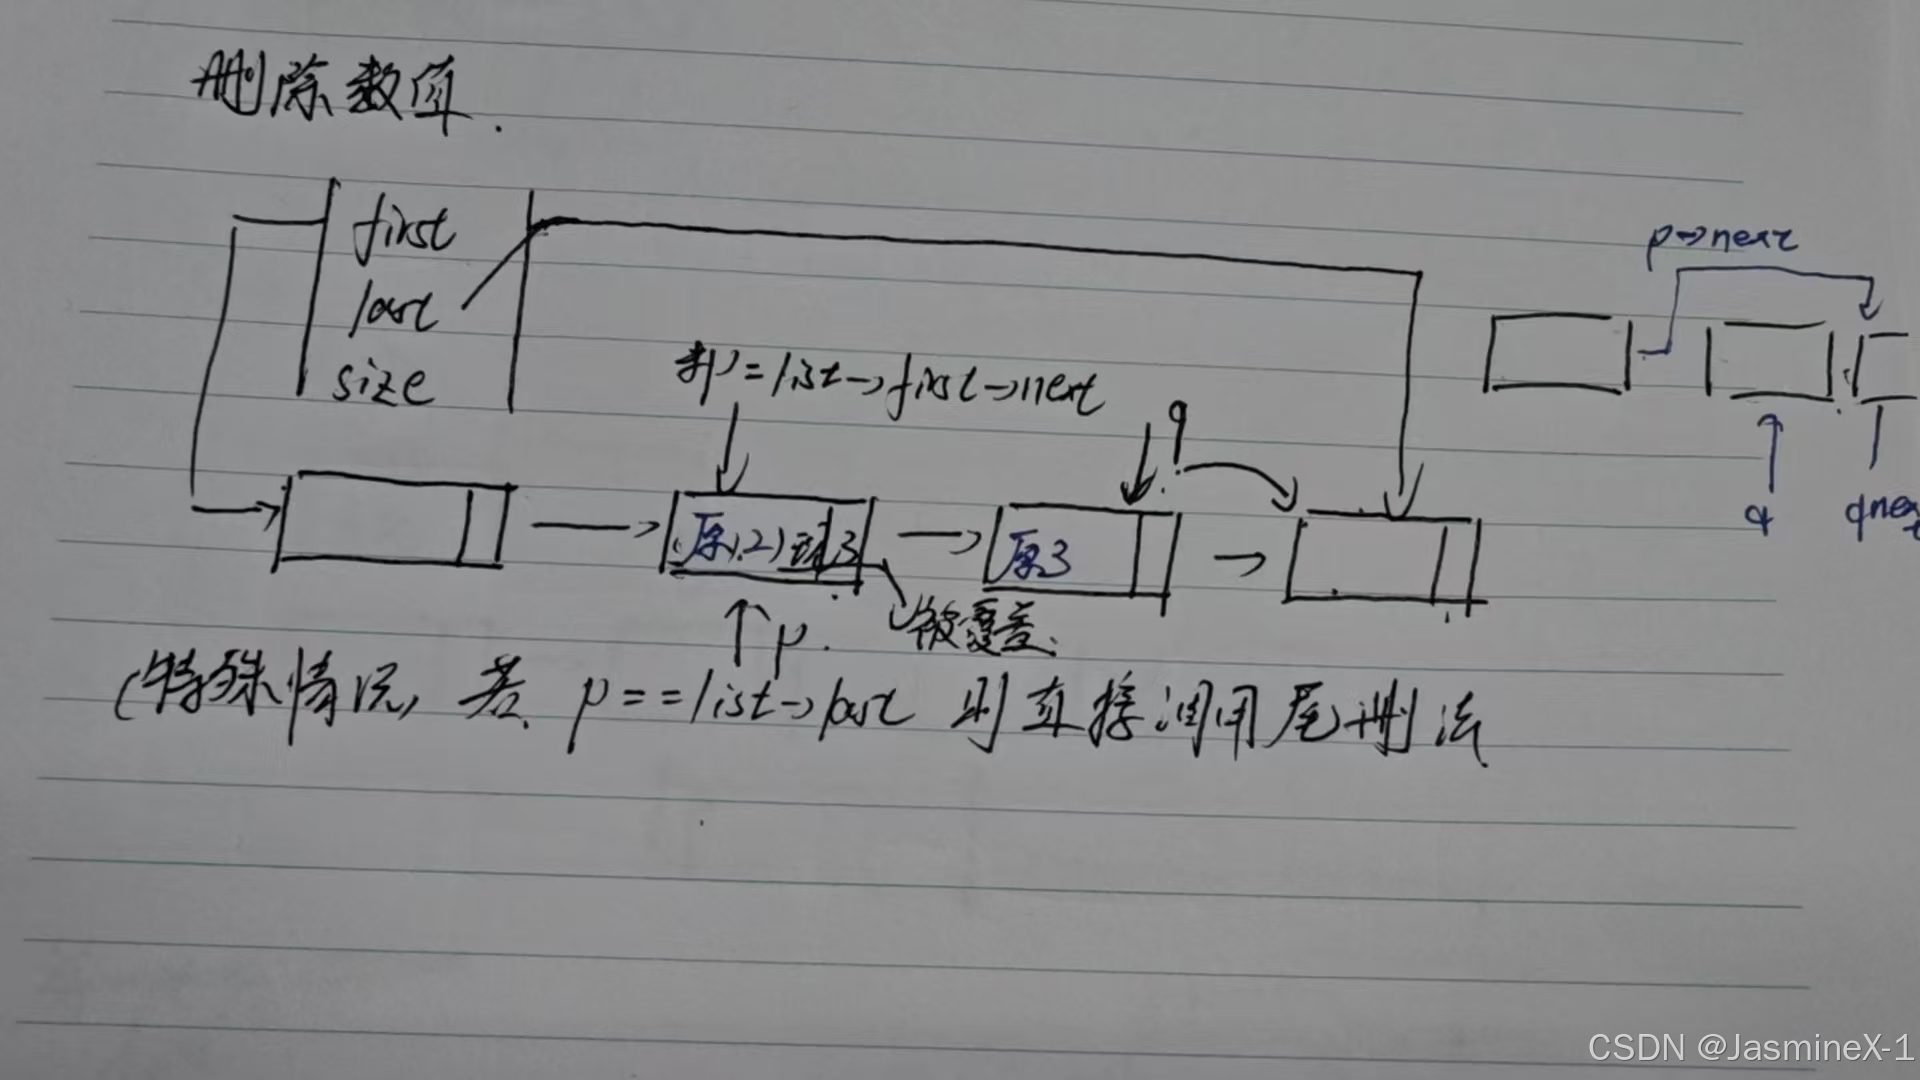 删除数值.
first
last
size
p->next
*p=list->first->next
q
q
qnext
原(2)现3
原3
p.
被覆盖.
(特殊情况,若 p==list->last 则直接调用尾删法
CSDN @JasmineX-1